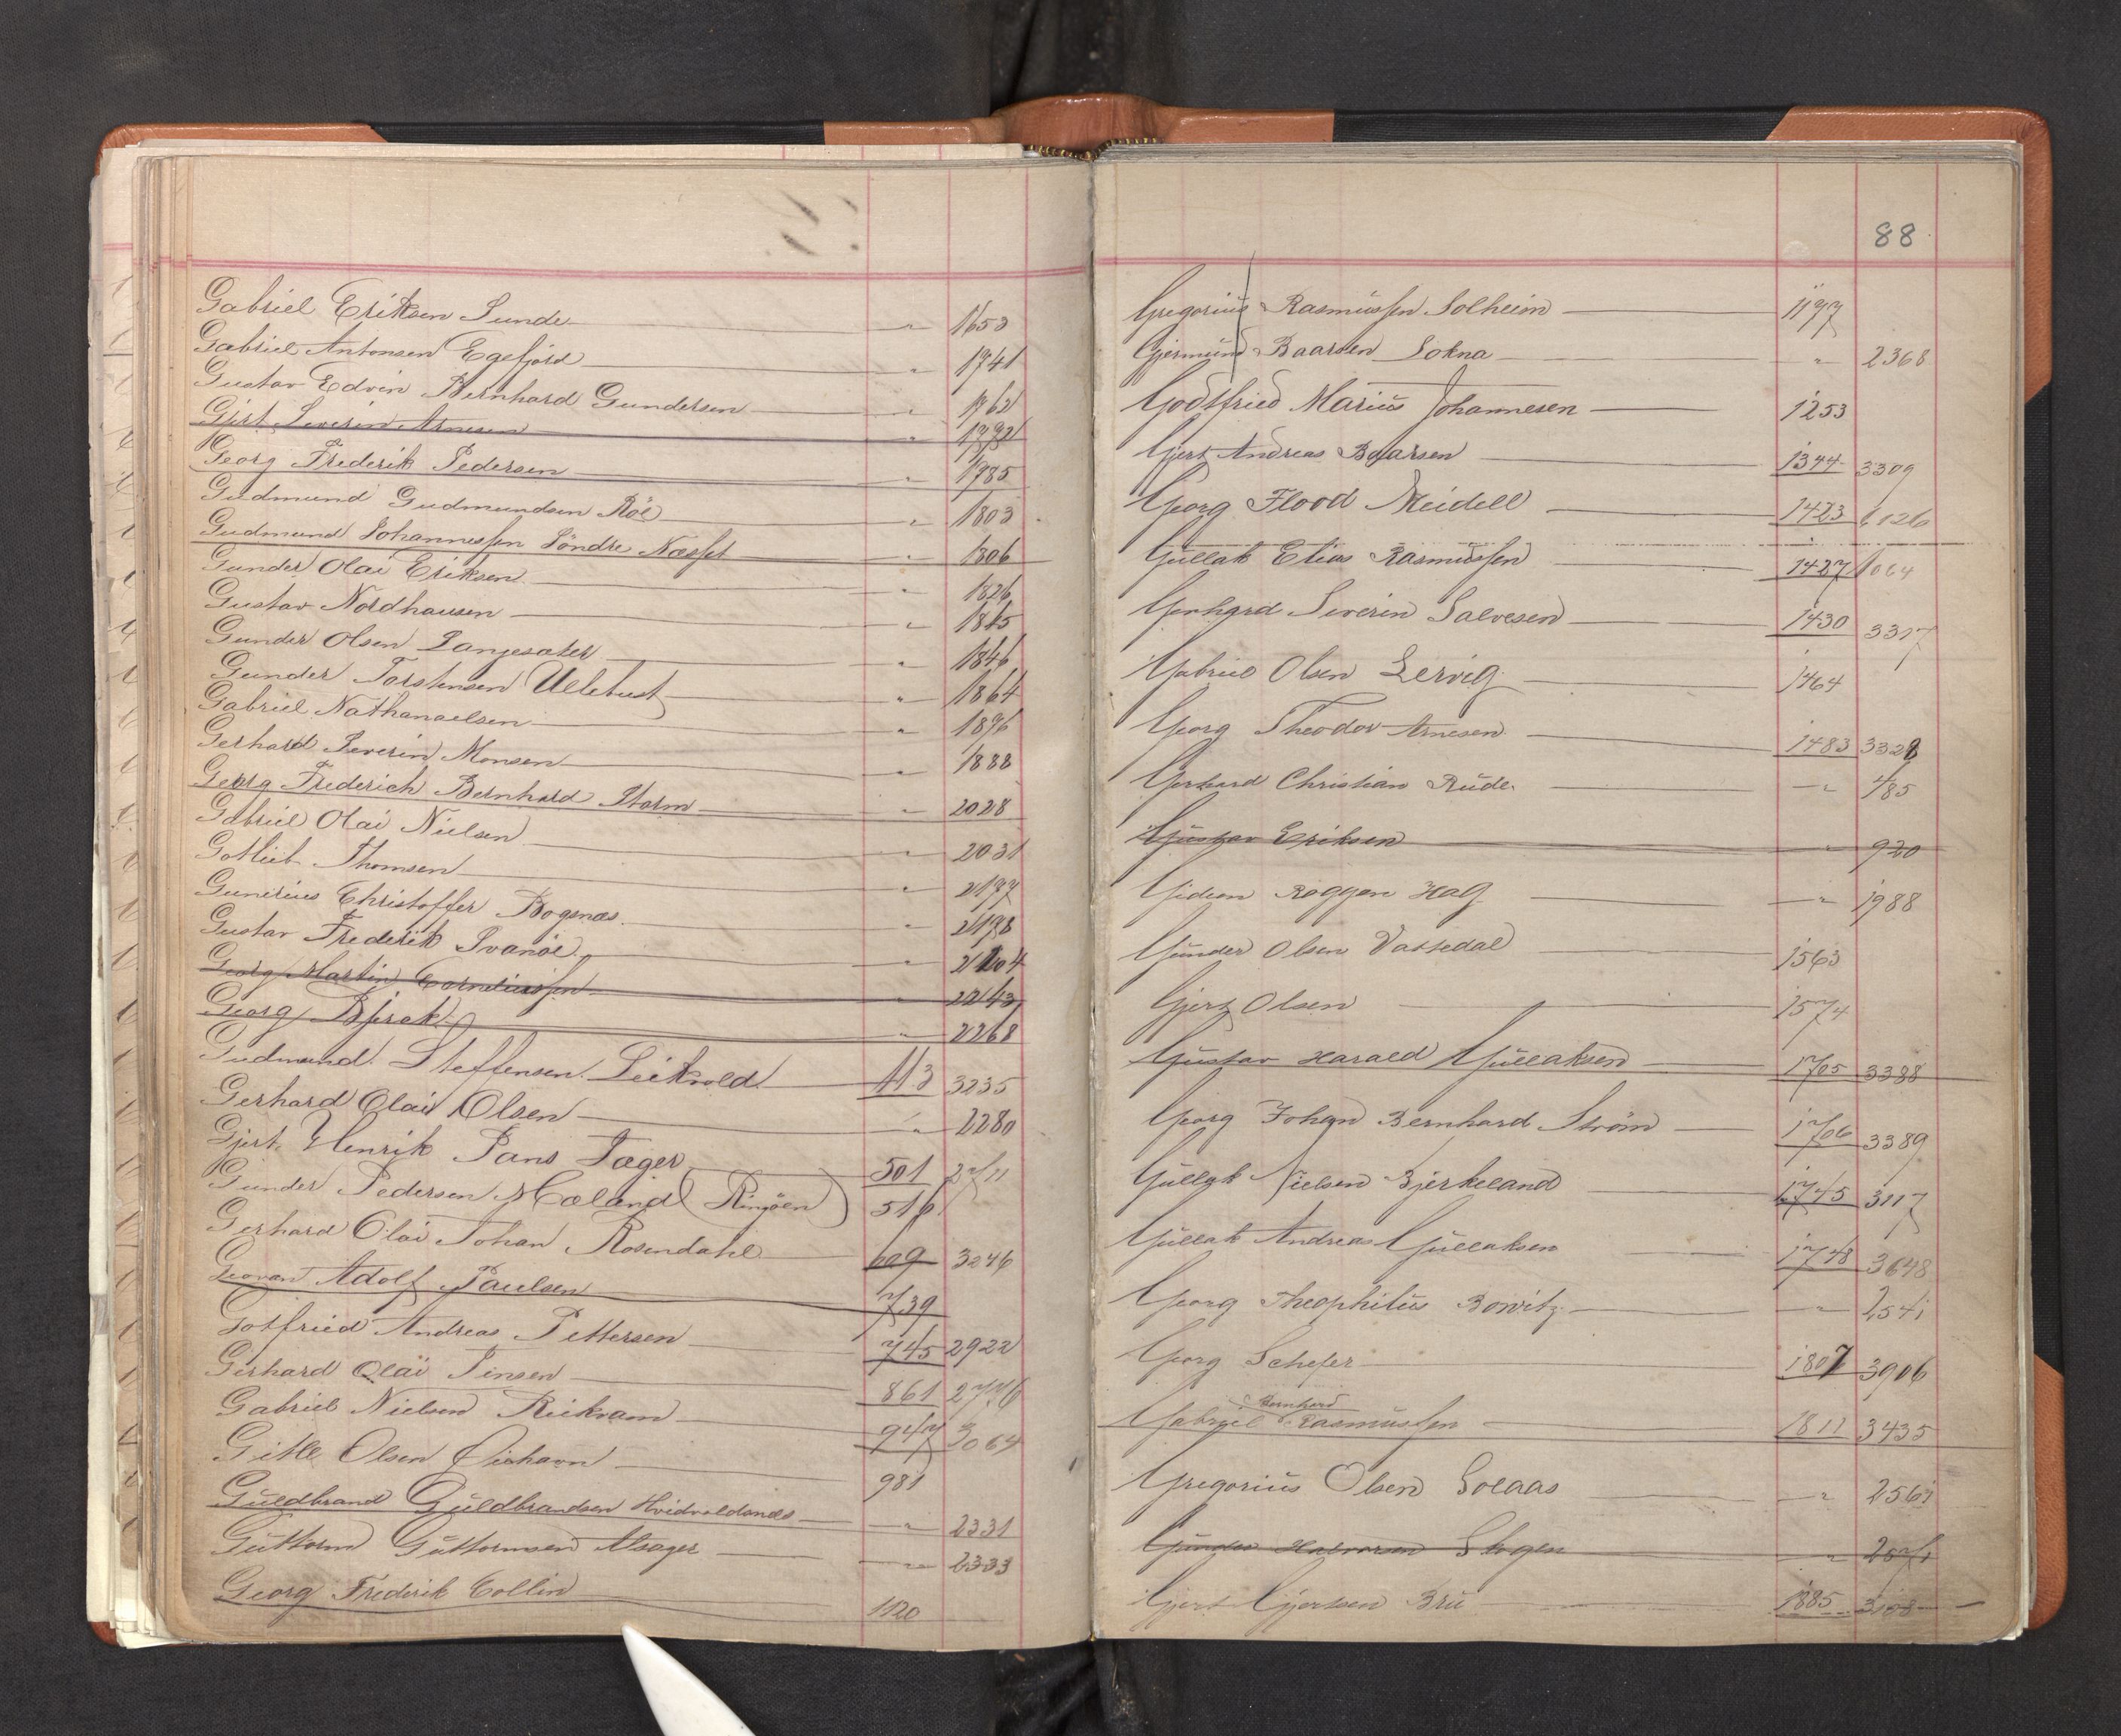 Gabriel Eriksen Sunde " 1653
Gabriel Antonsen Egefjord " 1741
Gustav Edvin Bernhard Gundersen " 1762
Gjert Severin Arnesen " 1772
Georg Frederik Pedersen " 1785
Gudmund Gudmundsen Röe " 1803
Gudmund Johannessen Söndre Næsset " 1806
Gunder Olai Eriksen " 1826
Gustav Nordhausen " 1845
Gunder Olsen Langesæter " 1846
Gunder Torstensen Ullebust " 1864
Gabriel Nathanaelsen " 1876
Gerhard Severin Monsen " 1888
Georg Frederich Bernhard Storm " 2028
Gabriel Olai Nielsen " 2031
Gotlieb Thomsen " 2177
Gunerius Christoffer Bogsnæs " 2178
Gustav Frederik Svanöe " 2204
Georg Martin Corneliussen " 2243
Georg Bjerck " 2268
Gudmund Steffensen Leikvold 113 3235
Gerhard Olai Olsen " 2280
Gjert Henrik Jans Jæger 501 2711
Gunder Pedersen Mæland (Ringöen) 516
Gerhard Olai Johan Rosendahl 609 3246
Adolf Paulsen 739
Gotfried Andreas Pettersen 745 2922
Gerhard Olai Jensen 861 2776
Gabriel Nielsen Reikvam 947 3064
Gitle Olsen 981
Guldbrand Guldbrandsen Hvidvoldsnes " 2331
Guttorm Guttormsen Alsager " 2333
Georg Frederik Collin 1120
88
Gregorius Rasmussen Solheim 1177
Gjermund Baarsen Sokna " 2368
Godtfried Marius Johannesen 1253
Gjert Andreas Baarsen 1344 3309
Georg Flood Meidell 1423
Gullak Elias Rasmussen 1427 1064
Gerhard Severin Salvesen 1430 3317
Gabriel Olsen Lervig 1464
Georg Theodor Arnesen 1483 3328
Gerhard Christian Rude " 485
Gustav Eriksen " 920
Gideon Roggen Hal " 1988
Gunder Olsen Vatsedal 1563
Gjert Olsen 1574
Gustav Harald Gullaksen 1705 3388
Georg Johan Bernhard Ström 1706 3389
Gullak Nielsen Bjerkeland 1745 3117
Gullak Andreas Gullaksen 1748 3648
Georg Theophilus Bowitz " 2541
Georg Schefer 1807 3906
Bernhard
Gabriel Rasmussen 1811 3435
Gregorius Olsen Solaas " 2561
Gunder Halvorsen Skogen " 2571
Gjert Gjertsen Bru 1885